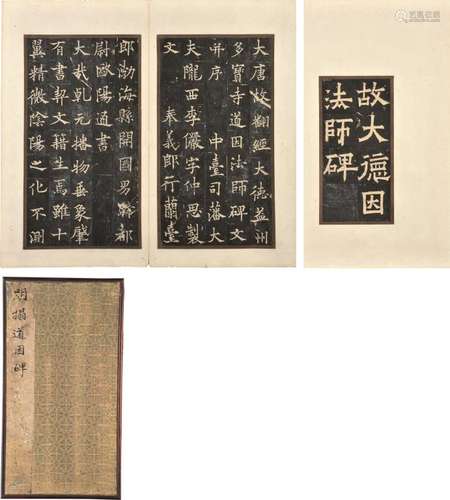 故大德因
法師碑
大唐故翻經大德益州
多寶寺道因法師碑文
并序 中臺司藩大
夫隴西李儼字仲思製
文 奉義郎行蘭臺
郎渤海縣開國男騎都
尉歐陽通書
大哉乾元播物垂象肇
有書契文籍生焉雖十
翼精微陰陽之化不測
明搨道因碑